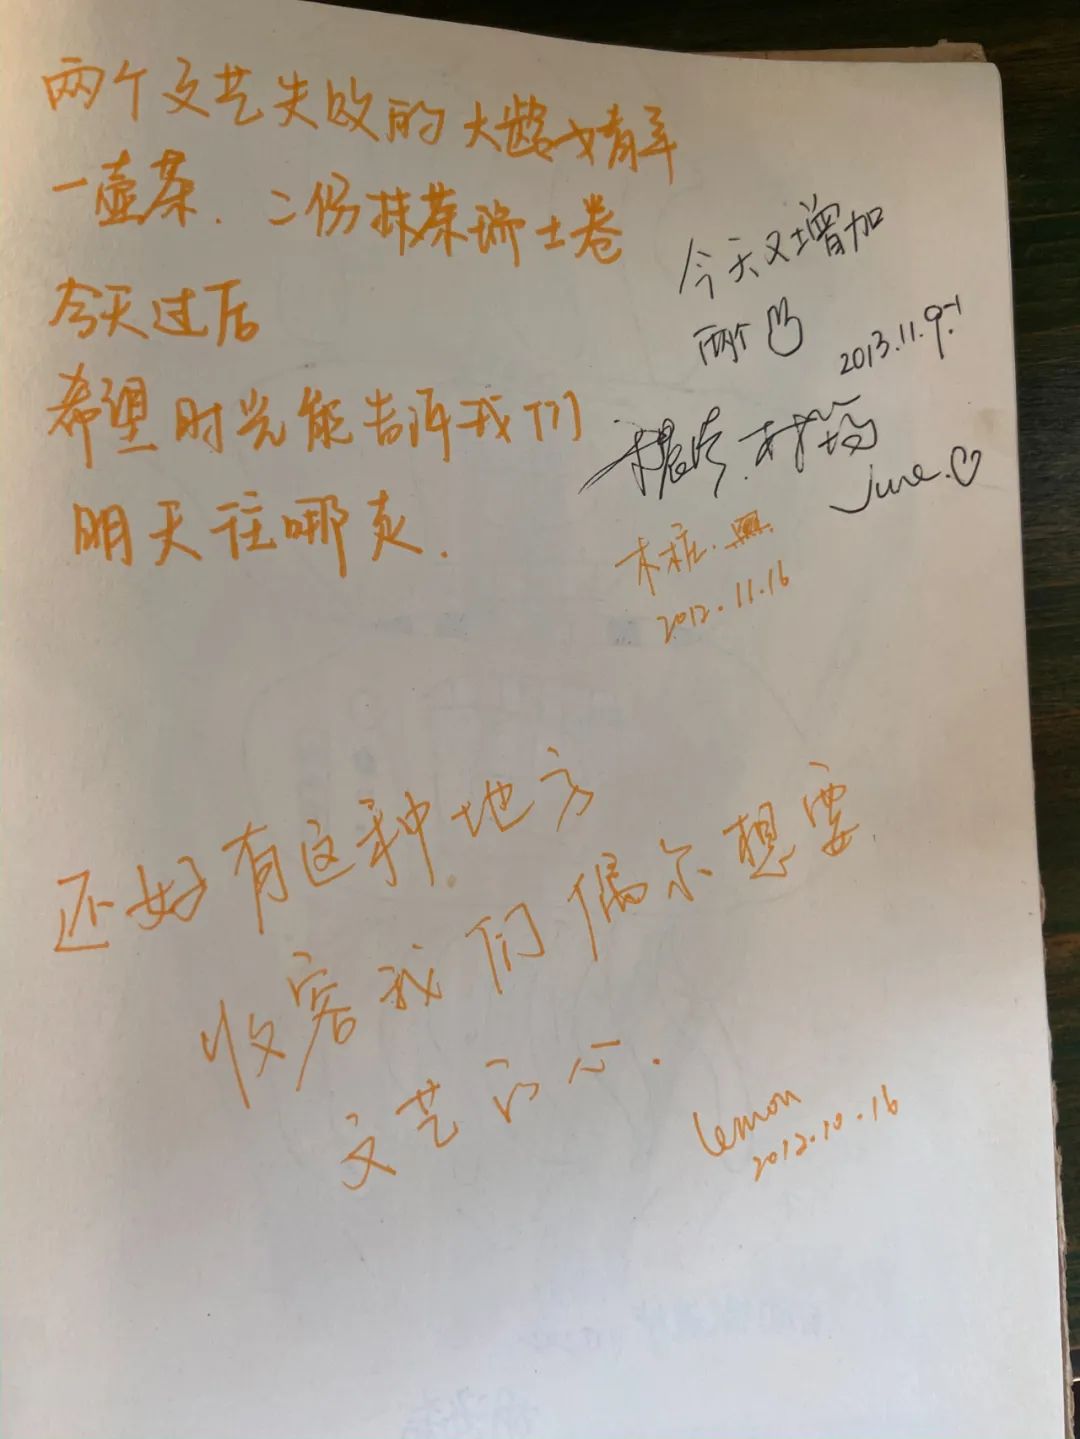 两个文艺失败的大龄女青年
一壶茶.二份抹茶瑞士卷
今天过后
希望时光能告诉我们
明天往哪走.
今天又增加
两个
2013.11.9.
june.
木桩.
2012.11.16
还好有这种地方
收容我们偶尔想要
文艺的心.
lemon
2012.10.16